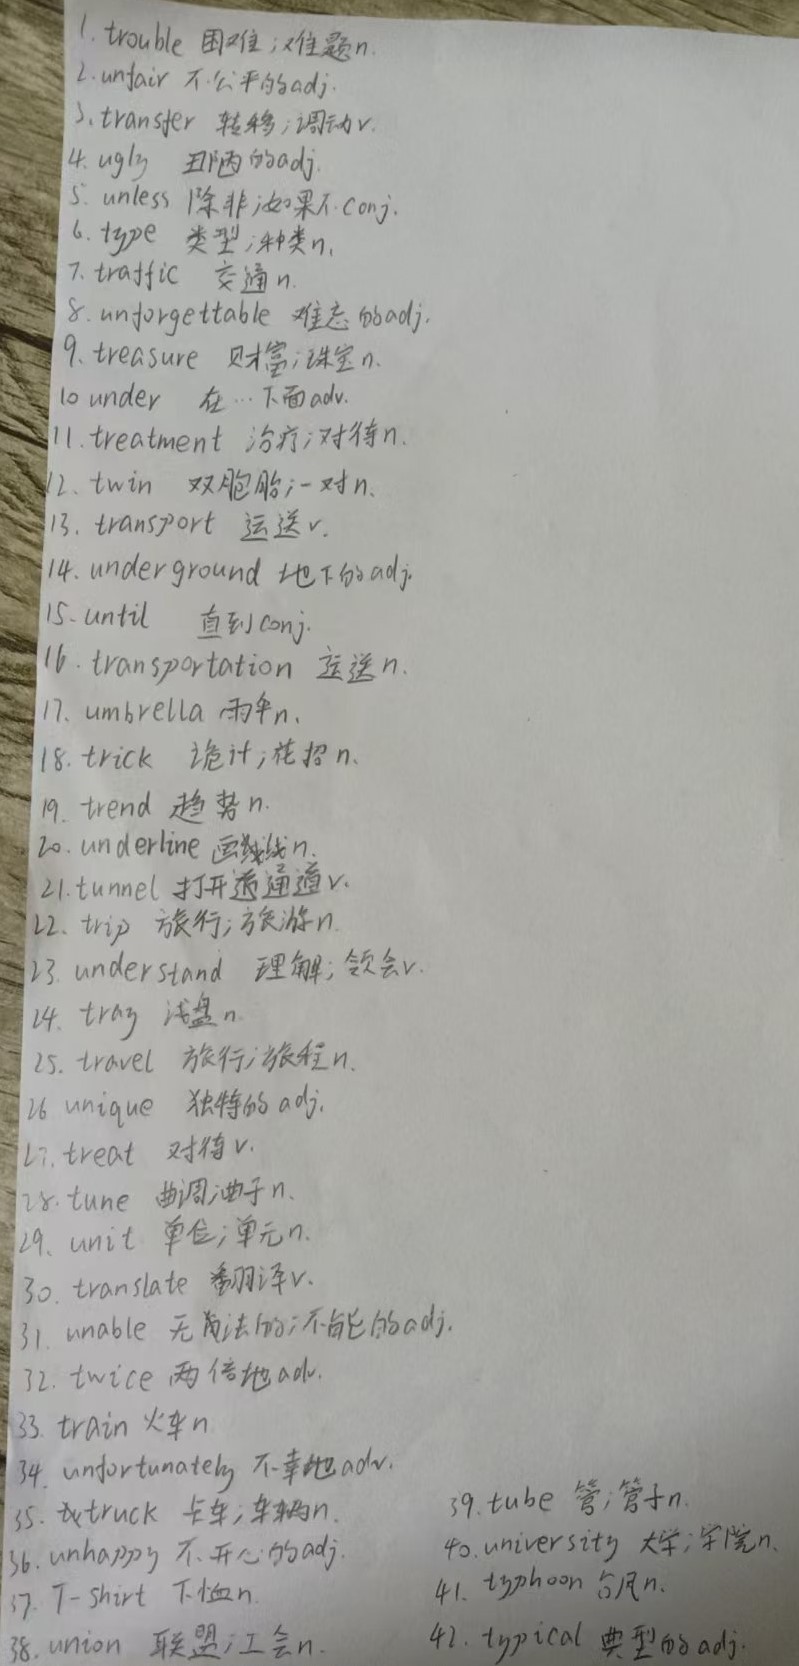 1. trouble 困难;难题n.
2. unfair 不公平的adj.
3. transfer 转移;调动v.
4. ugly 丑陋的adj.
5. unless 除非;如果不conj.
6. type 类型;种类n.
7. traffic 交通n.
8. unforgettable 难忘的adj.
9. treasure 财富;珠宝n.
10 under 在…下面adv.
11. treatment 治疗;对待n.
12. twin 双胞胎;一对n.
13. transport 运送v.
14. underground 地下的adj.
15. until 直到conj.
16. transportation 运送n.
17. umbrella 雨伞n.
18. trick 诡计;花招n.
19. trend 趋势n.
20. underline 画线n.
21. tunnel 打开通道v.
22. trip 旅行;旅游n.
23. understand 理解;领会v.
24. tray 浅盘n
25. travel 旅行;旅程n.
26 unique 独特的adj.
27. treat 对待v.
28. tune 曲调;曲子n.
29. unit 单位;单元n.
30. translate 翻译v.
31. unable 无法的;不能的adj.
32. twice 两倍地adv.
33. train 火车n
34. unfortunately 不幸地adv.
35. truck 卡车;车辆n.
36. unhappy 不开心的adj.
37. T-shirt T恤n.
38. union 联盟;工会n.
39. tube 管;管子n.
40. university 大学;学院n.
41. typhoon 台风n.
42. typical 典型的adj.